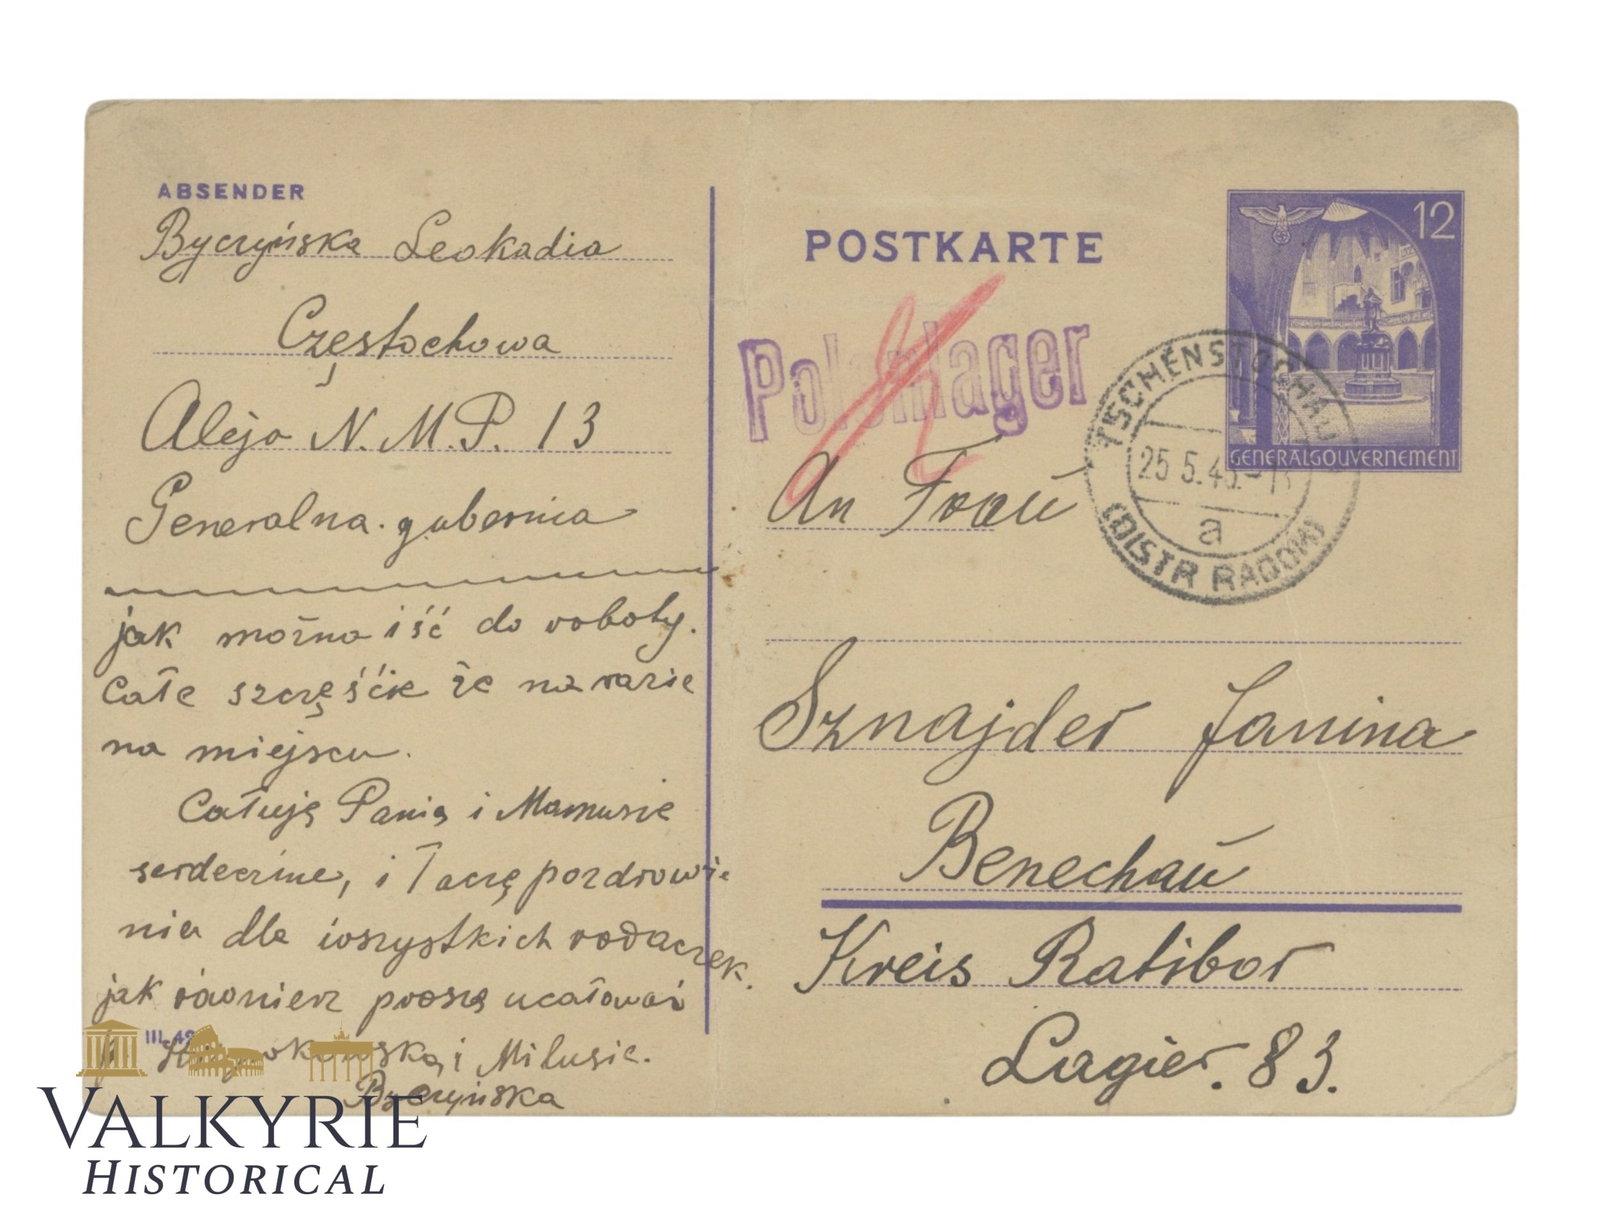 ABSENDER
Byczyńska Leokadia
Częstochowa
Aleja N.M.P. 13
Generalna. gubernia
jak można iść do roboty.
Całe szczęście że na razie
na miejscu.
Całuję Panią i Mamusie
serdecznie, i łączę pozdrowie
nia dla wszystkich rodaczek.
jak również proszę ucałować
i Milusie.
Byczyńska
III.42
POSTKARTE
Polenlager
12
GENERALGOUVERNEMENT
TSCHENSTOCHAU
25.5.43.
a
(DISTR RADOM)
An Frau
Sznajder Janina
Benechau
Kreis Ratibor
Lagier. 83.
VALKYRIE
HISTORICAL